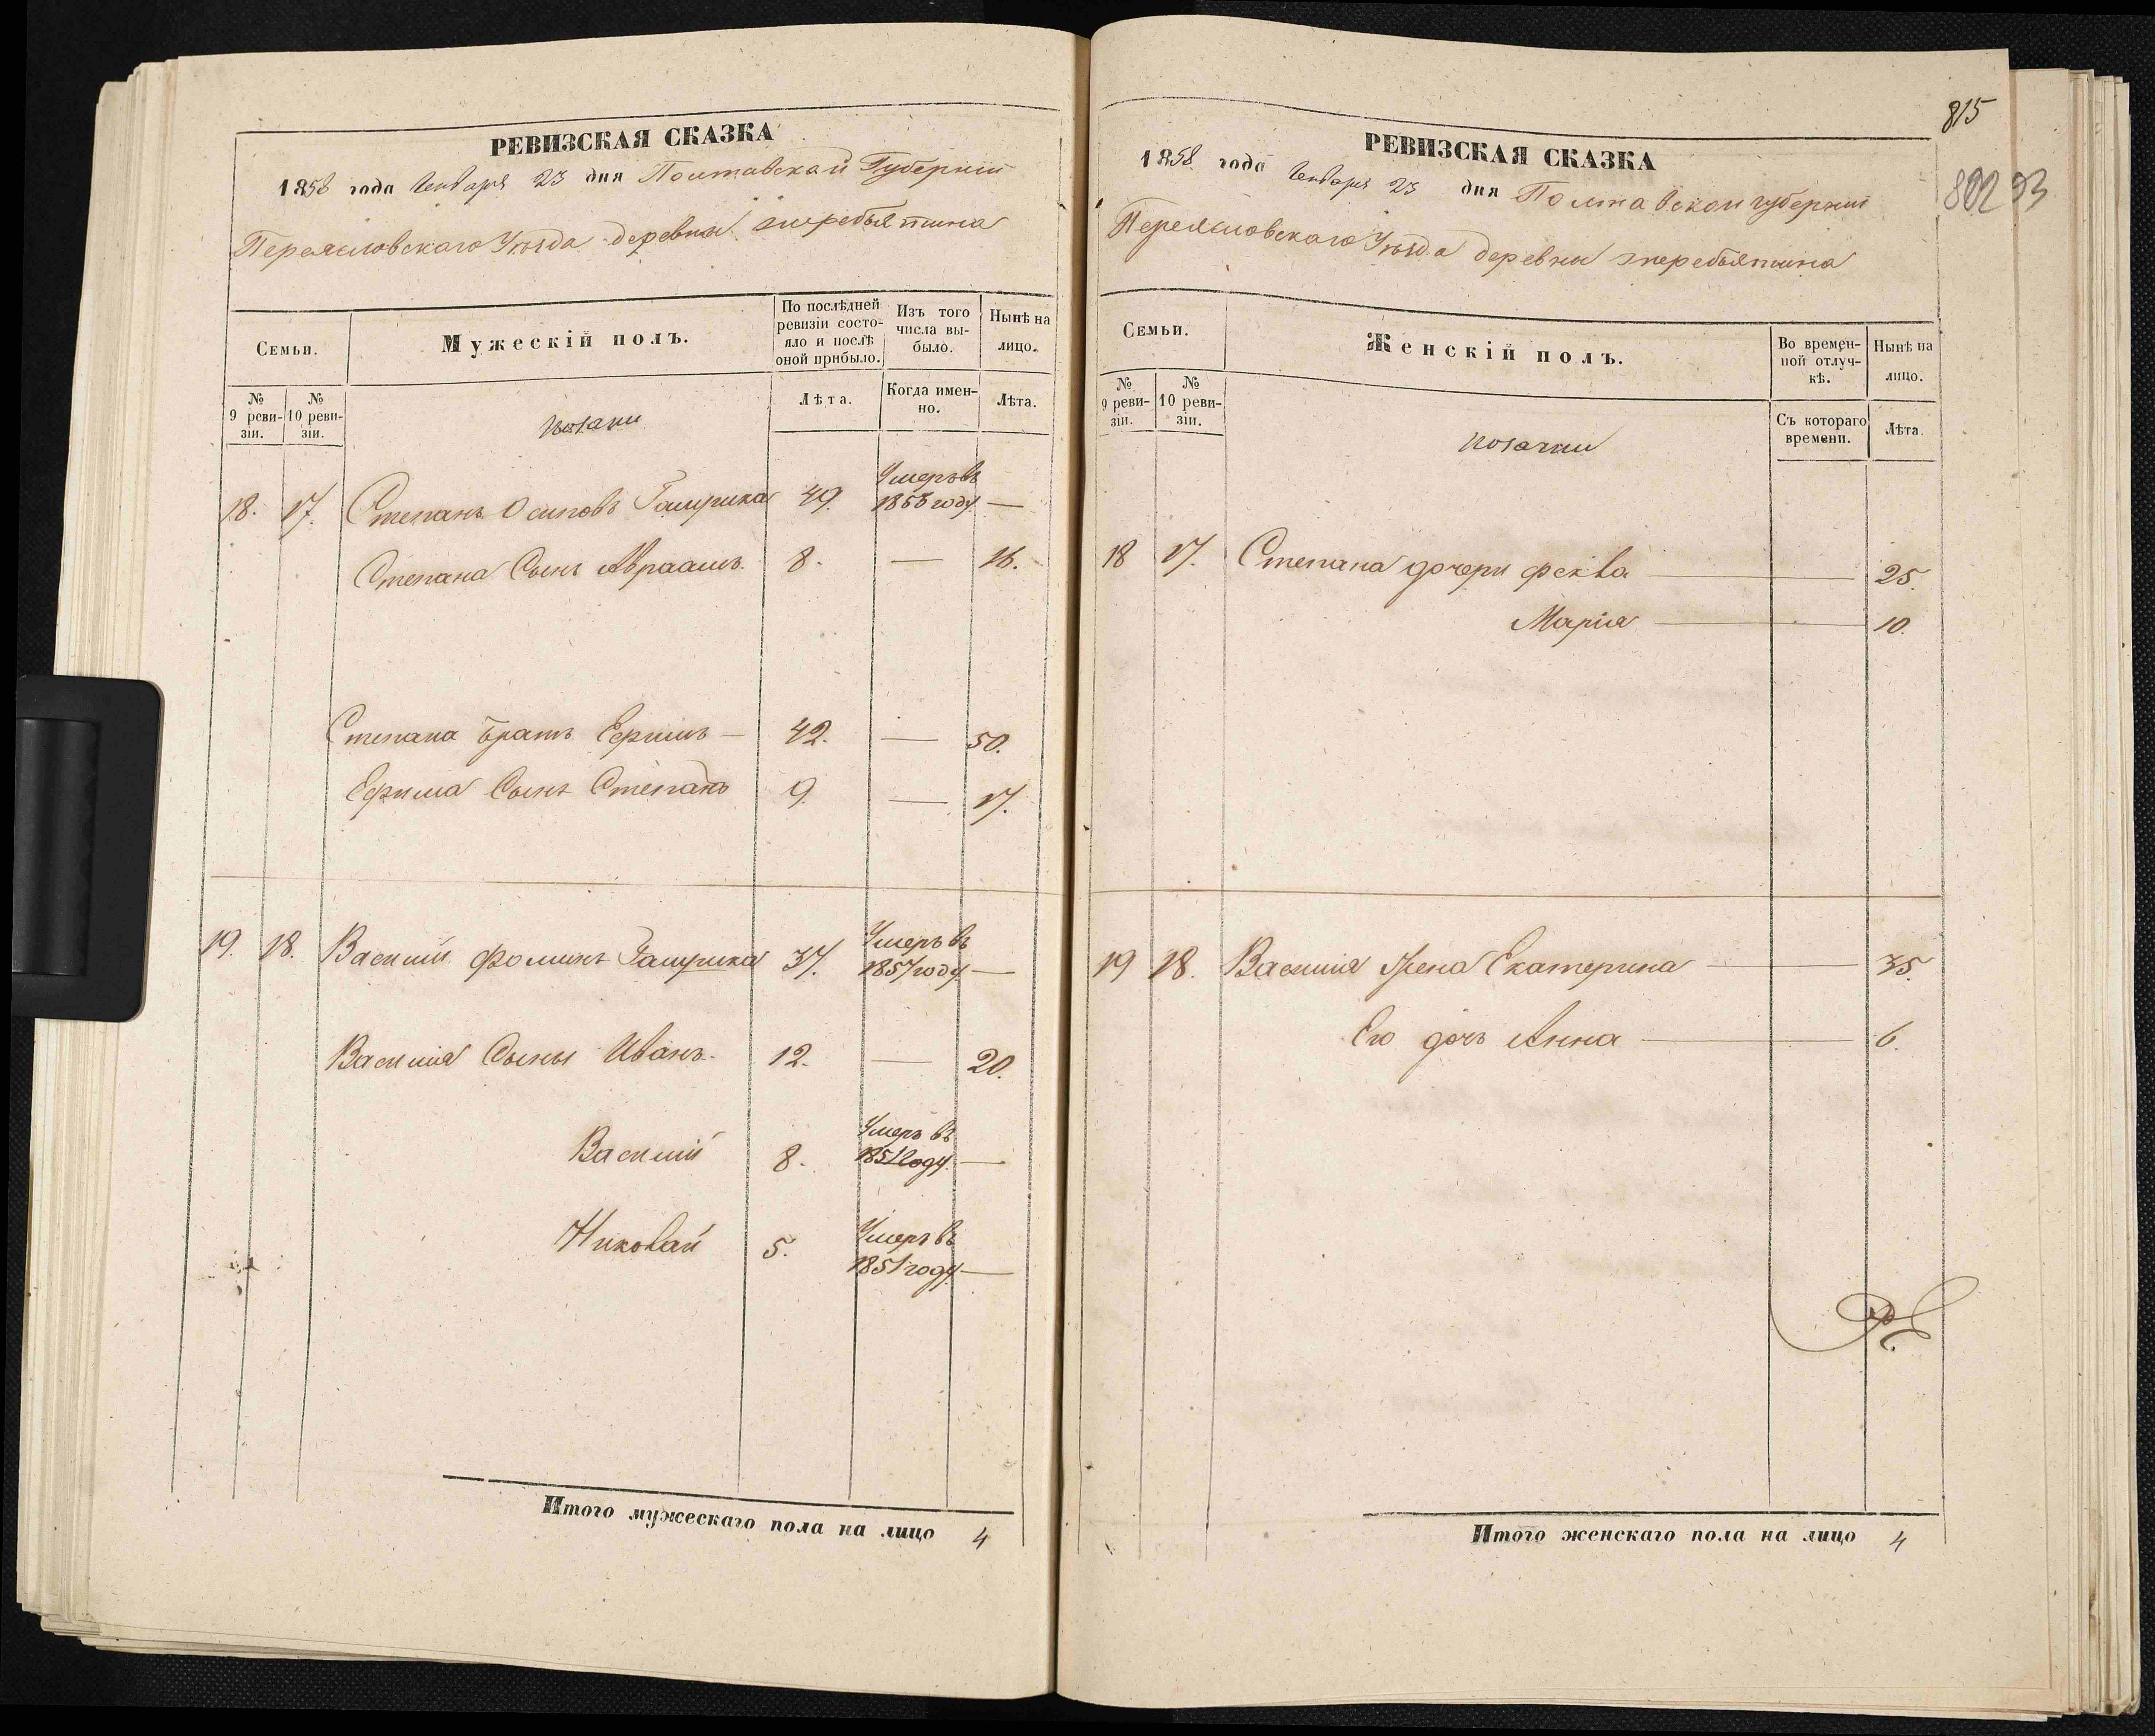 815
802 93
РЕВИЗСКАЯ СКАЗКА
1858 года Генваря 23 дня Полтавской Губернии
Переясловскаго Уѣзда деревни жеребятина
Семьи.
Мужескій полъ.
По послѣдней ревизіи состояло и послѣ оной прибыло.
Изъ того числа выбыло.
Нынѣ на лицо.
№ 9 ревизіи.
№ 10 ревизіи.
козаки
Лѣта.
Когда именно.
Лѣта.
18. 17. Степанъ Осиповъ 49. Умеръ въ 1855 году —
Степана Сынъ Авраамъ. 8. — 16.
Степана братъ Ефимъ — 42. — 50.
Ефима Сынъ Степанъ 9. — 17.
19. 18. Василий Фоминъ 37. Умеръ въ 1857 году —
Василия Сыны Иванъ. 12. — 20.
Василий 8. Умеръ въ 1851 году —
Николай 5. Умеръ въ 1851 году —
Итого мужескаго пола на лицо 4
РЕВИЗСКАЯ СКАЗКА
1858 года Генваря 23 дня Полтавской губернии
Переясловскаго Уѣзда деревни жеребятина
Семьи.
Женскій полъ.
Во временной отлучкѣ.
Нынѣ на лицо.
№ 9 ревизіи.
№ 10 ревизіи.
козачки
Съ котораго времени.
Лѣта.
18 17. Степана дочери Фекла — 25.
Марія — 10.
19 18. Василия Жена Екатерина — 35.
Его дочь Анна — 6.
Итого женскаго пола на лицо 4